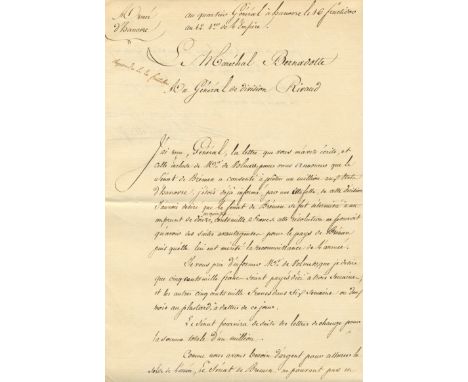 Armée d'hanovre
au quartier Général à hanovre le 16 fructidor
an 12 1er de l'Empire.
Le Maréchal Bernadotte
Au Général de division Rivaud
J'ai reçu, Général, la lettre que vous m'avez écrite, et
celle incluse de Mr. de pour vous annoncer que le
Sénat de Brémen a consenti à prêter un million aux états
d'hanovre; j'étois déjà informé par une de cette décision
J'aurois désiré que le Sénat de Brémen se fut déterminé à un
emprunt de cent mille francs cette résolution ne pouvoit
qu'avoir des suites avantageuses pour le pays de Brémen
puisqu'elle lui eut mérité la reconnoissance de l'armée.
Je vous prie d'informer Mr. de que je désire
que cinq cents mille francs soient payés d'ici à trois semaines
et les autres cinq cents mille francs dans six semaines ou deux
mois au plus tard, à dater de ce jour.
Le Sénat fournira de suite des lettres de change pour
la somme totale d'un million.
Comme nous avons besoin d'argent pour assurer la
solde de l'armée, le Sénat de Brémen, ne pourroit pas se